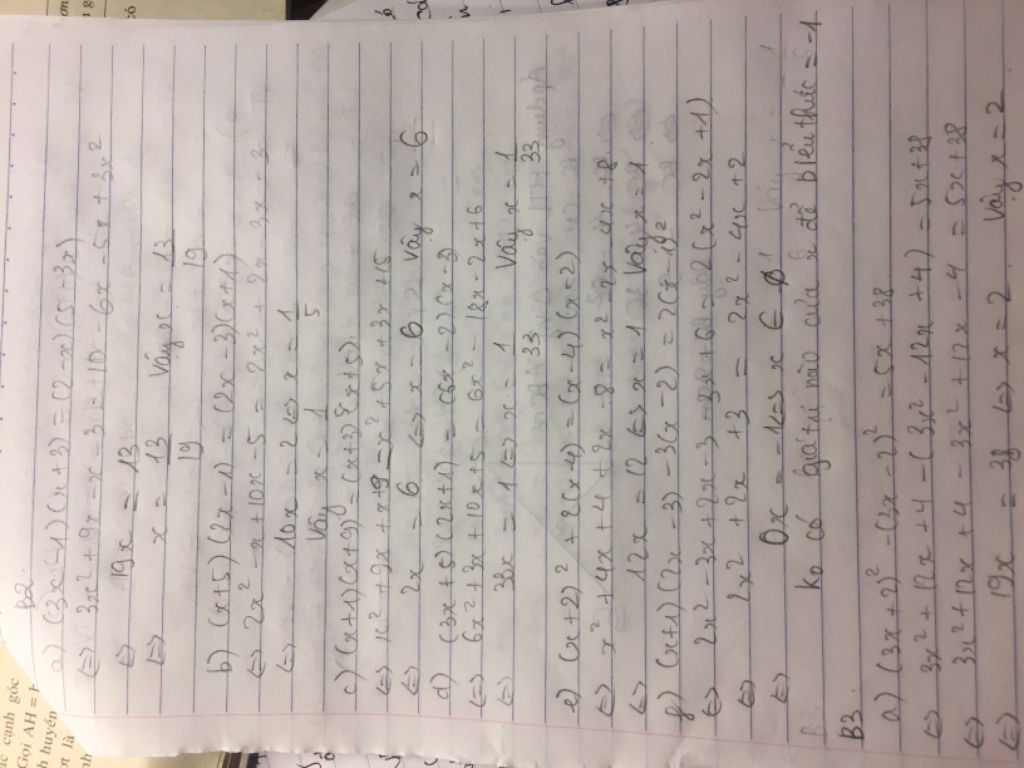 B2.
a) (3x-1)(x+3) = (2-x)(5+3x)
⇔ 3x² + 9x - x - 3 = 10 - 6x - 5x + 3x²
⇔ 19x = 13
⇔ x = 13/19 Vậy x = 13/19
b) (x+5)(2x-1) = (2x-3)(x+1)
⇔ 2x² - x + 10x - 5 = 2x² + 2x - 3x - 3
⇔ 10x = 2 ⇔ x = 1/5
Vậy x = 1/5
c) (x+1)(x+9) = (x+3)(x+5)
⇔ x² + 9x + x + 9 = x² + 5x + 3x + 15
⇔ 2x = 6 ⇔ x = 6 Vậy x = 6
d) (3x+5)(2x+1) = (6x-2)(x-3)
⇔ 6x² + 3x + 10x + 5 = 6x² - 18x - 2x + 6
⇔ 33x = 1 ⇔ x = 1/33 Vậy x = 1/33
e) (x+2)² + 2(x-4) = (x-4)(x-2)
⇔ x² + 4x + 4 + 2x - 8 = x² - 2x - 4x + 8
⇔ 12x = 12 ⇔ x = 1 Vậy x = 1
f) (x+1)(2x-3) - 3(x-2) = 2(x-1)²
⇔ 2x² - 3x + 2x - 3 - 3x + 6 = 2(x² - 2x + 1)
⇔ 2x² + 2x + 3 = 2x² - 4x + 2
⇔ 0x = -1 ⇔ x ∈ ∅
ko có giá trị nào của x để biểu thức = -1
B3
a) (3x+2)² - (3x-2)² = 5x + 38
⇔ 3x² + 12x + 4 - (3x² - 12x + 4) = 5x + 38
⇔ 3x² + 12x + 4 - 3x² + 12x - 4 = 5x + 38
⇔ 19x = 38 ⇔ x = 2 Vậy x = 2
c canh góc
Gọi AH =
h huyền